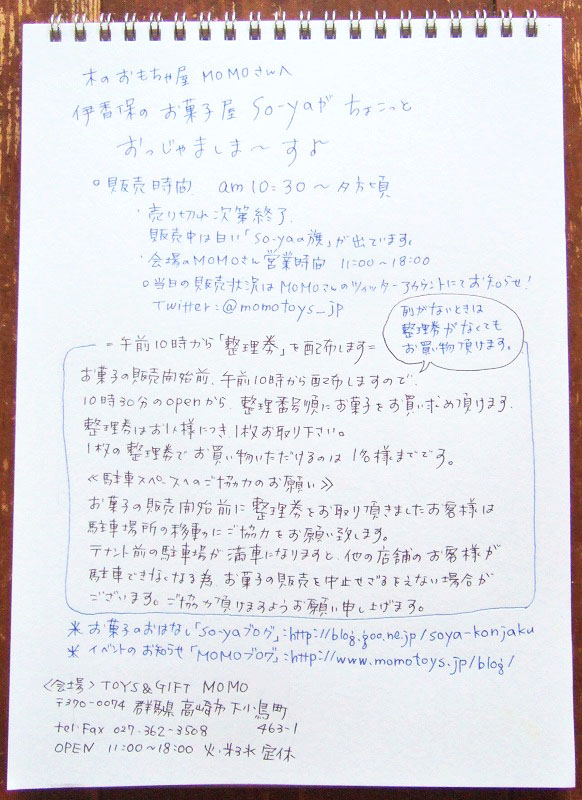 木のおもちゃ屋 MOMOさんへ
伊香保の お菓子屋 So-yaが ちょこっと
おっじゃましま〜すよ
○販売時間 am10:30〜夕方頃
・売り切れ次第終了
販売中は白い「So-yaの旗」が出ています。
・会場のMOMOさん営業時間 11:00〜18:00
○当日の販売状況はMOMOさんのツイッターアカウントにてお知らせ!
Twitter:@momotoys_jp
列がないときは
整理券がなくても
お買い物頂けます。
=午前10時から「整理券」を配布します=
お菓子の販売開始前、午前10時から配布しますので、
10時30分のopenから、整理番号順にお菓子をお買い求め頂けます。
整理券はお1人様につき1枚お取り下さい。
1枚の整理券でお買い物いただけるのは1名様までです。
《駐車スペースへのご協力のお願い》
お菓子の販売開始前に整理券をお取り頂きましたお客様は
駐車場所の移動にご協力をお願い致します。
テナント前の駐車場が満車になりますと、他の店舗のお客様が
駐車できなくなる為、お菓子の販売を中止せざるをえない場合が
ございます。ご協力頂けますようお願い申し上げます。
※ お菓子のおはなし「So-yaブログ」:http://blog.goo.ne.jp/soya-konjaku
※ イベントのお知らせ「MOMOブログ」:http://www.momotoys.jp/blog/
〈会場〉TOYS&GIFT MOMO
〒370-0074 群馬県高崎市下小鳥町
463-1
tel・Fax 027-362-3508
OPEN 11:00〜18:00 火・第3水 定休